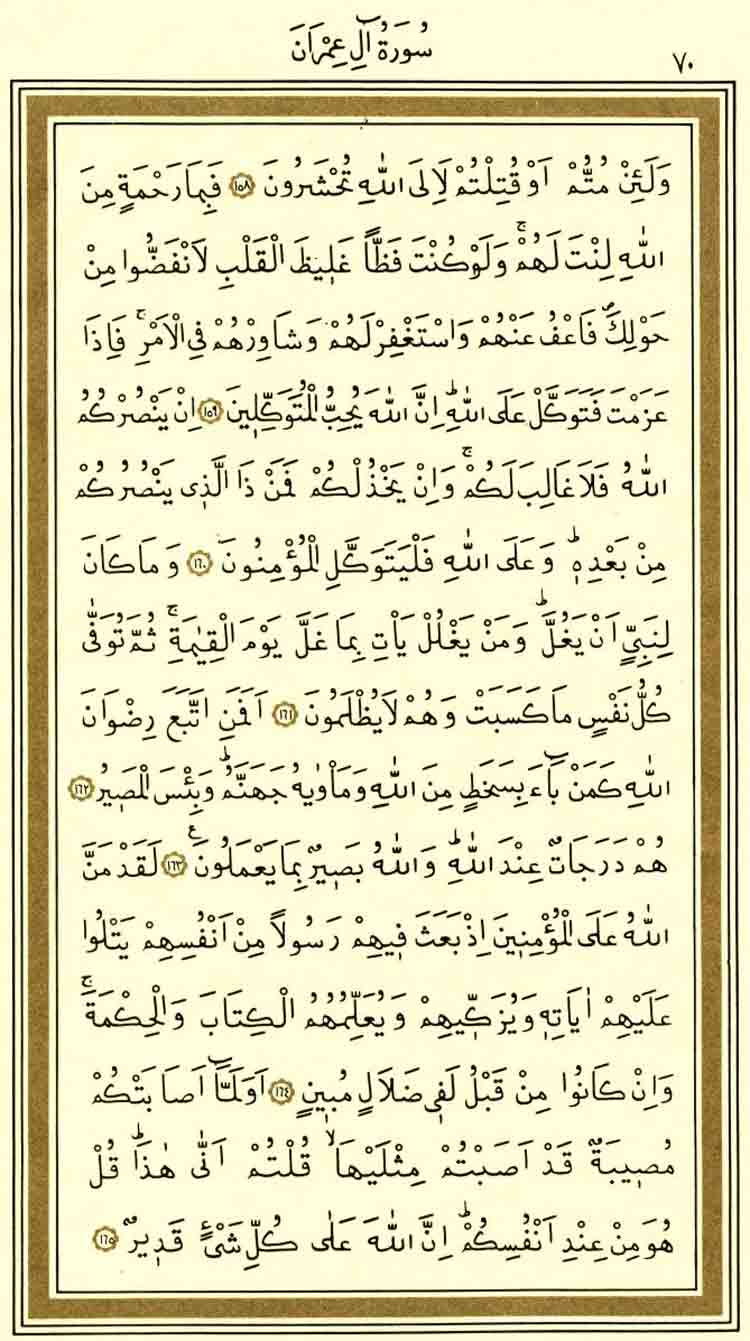 سُورَةُ اٰلِ عِمْرَانَ ٧٠
وَلَئِنْ مُتُّمْ اَوْ قُتِلْتُمْ لَاِلَى اللّٰهِ تُحْشَرُونَ ﴿١٥٨﴾ فَبِمَا رَحْمَةٍ مِنَ
اللّٰهِ لِنْتَ لَهُمْۚ وَلَوْ كُنْتَ فَظًّا غَلٖيظَ الْقَلْبِ لَانْفَضُّوا مِنْ
حَوْلِكَࣕ فَاعْفُ عَنْهُمْ وَاسْتَغْفِرْ لَهُمْ وَشَاوِرْهُمْ فِى الْاَمْرِۚ فَاِذَا
عَزَمْتَ فَتَوَكَّلْ عَلَى اللّٰهِؕ اِنَّ اللّٰهَ يُحِبُّ الْمُتَوَكِّلٖينَ ﴿١٥٩﴾ اِنْ يَنْصُرْكُمُ
اللّٰهُ فَلَا غَالِبَ لَكُمْۚ وَاِنْ يَخْذُلْكُمْ فَمَنْ ذَا الَّذٖى يَنْصُرُكُمْ
مِنْ بَعْدِهٖؕ وَعَلَى اللّٰهِ فَلْيَتَوَكَّلِ الْمُؤْمِنُونَ ﴿١٦٠﴾ وَمَا كَانَ
لِنَبِىٍّ اَنْ يَغُلَّؕ وَمَنْ يَغْلُلْ يَاْتِ بِمَا غَلَّ يَوْمَ الْقِيٰمَةِۚ ثُمَّ تُوَفّٰى
كُلُّ نَفْسٍ مَا كَسَبَتْ وَهُمْ لَا يُظْلَمُونَ ﴿١٦١﴾ اَفَمَنِ اتَّبَعَ رِضْوَانَ
اللّٰهِ كَمَنْ بَٓاءَ بِسَخَطٍ مِنَ اللّٰهِ وَمَاْوٰيهُ جَهَنَّمُؕ وَبِئْسَ الْمَصٖيرُ ﴿١٦٢﴾
هُمْ دَرَجَاتٌ عِنْدَ اللّٰهِؕ وَاللّٰهُ بَصٖيرٌ بِمَا يَعْمَلُونَ ﴿١٦٣﴾ لَقَدْ مَنَّ
اللّٰهُ عَلَى الْمُؤْمِنٖينَ اِذْ بَعَثَ فٖيهِمْ رَسُولاً مِنْ اَنْفُسِهِمْ يَتْلُوا
عَلَيْهِمْ اٰيَاتِهٖ وَيُزَكّٖيهِمْ وَيُعَلِّمُهُمُ الْكِتَابَ وَالْحِكْمَةَۚ
وَاِنْ كَانُوا مِنْ قَبْلُ لَفٖى ضَلَالٍ مُبٖينٍ ﴿١٦٤﴾ اَوَلَمَّٓا اَصَابَتْكُمْ
مُصٖيبَةٌ قَدْ اَصَبْتُمْ مِثْلَيْهَاۙ قُلْتُمْ اَنّٰى هٰذَاؕ قُلْ
هُوَ مِنْ عِنْدِ اَنْفُسِكُمْؕ اِنَّ اللّٰهَ عَلٰى كُلِّ شَىْءٍ قَدٖيرٌ ﴿١٦٥﴾